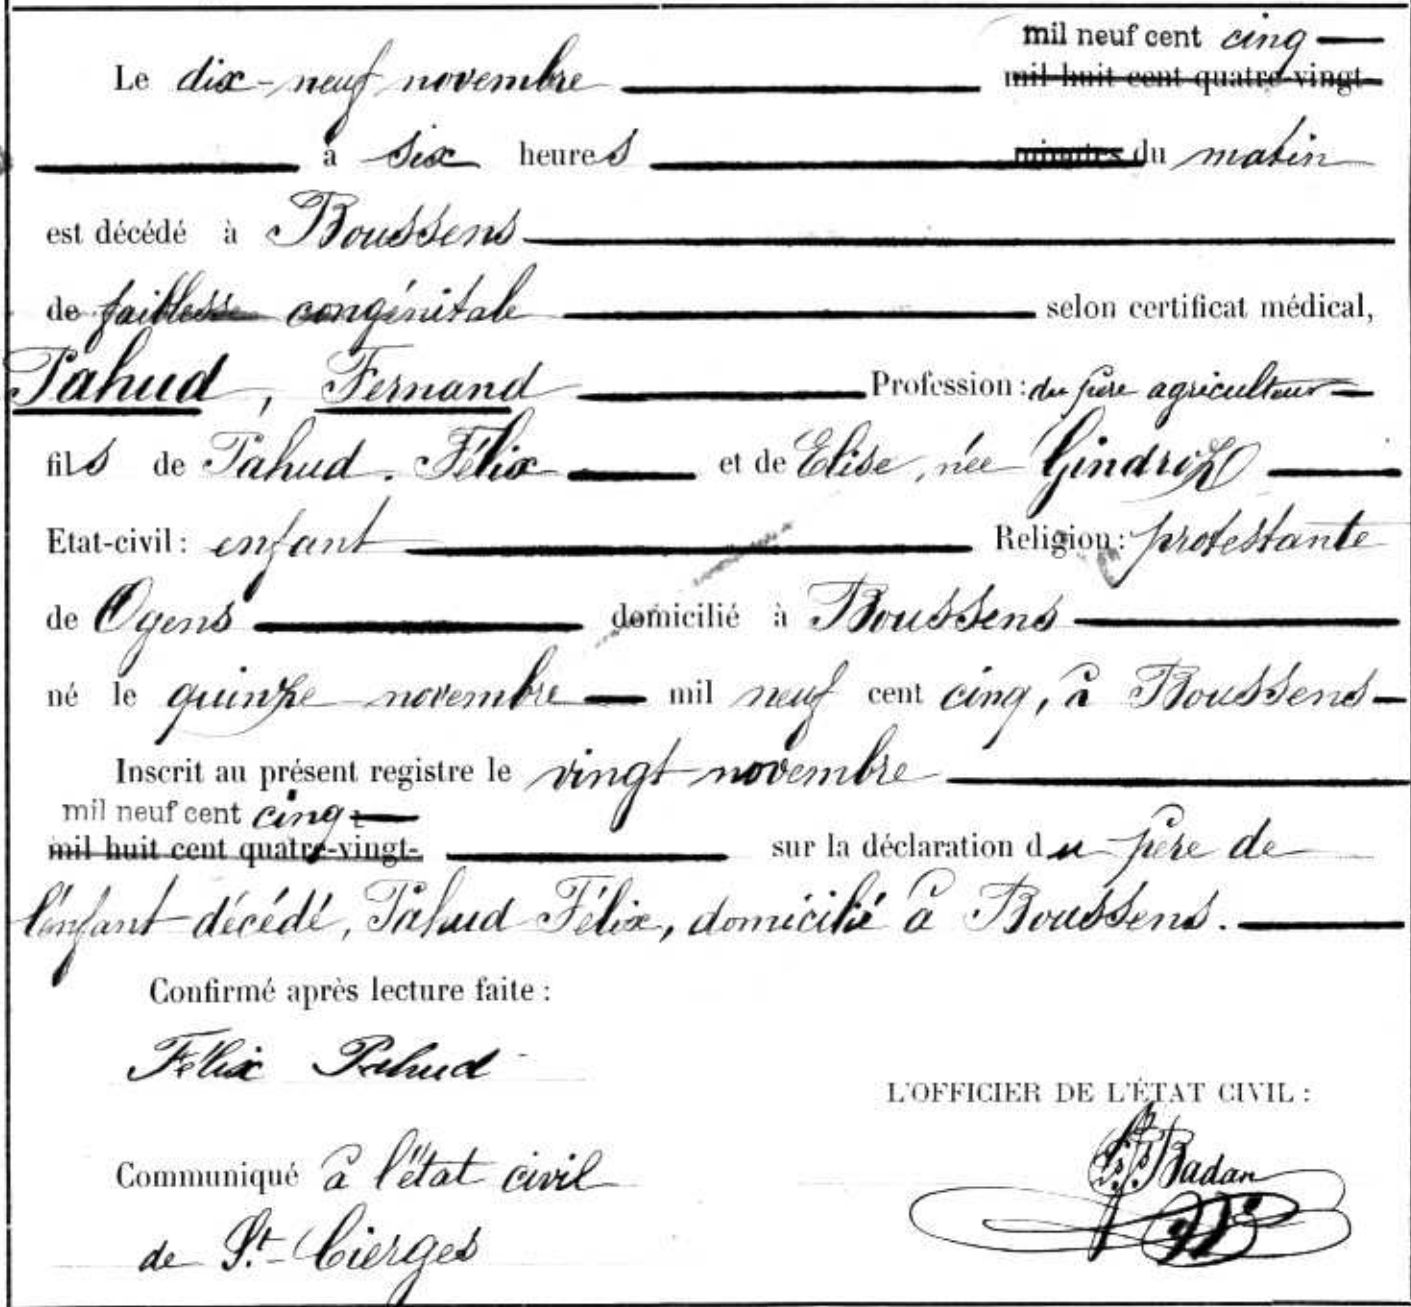 mil neuf cent cinq
Le dix-neuf novembre mil huit cent quatre-vingt-
à six heures minutes du matin
est décédé à Boussens
de faiblesse congénitale selon certificat médical,
Pahud, Fernand Profession: du père agriculteur
fils de Pahud. Félix et de Elise, née Gindroz
Etat-civil: enfant Religion: protestante
de Ogens domicilié à Boussens
né le quinze novembre mil neuf cent cinq, à Boussens
Inscrit au présent registre le vingt novembre
mil neuf cent cinq
mil huit cent quatre-vingt- sur la déclaration du père de
l'enfant décédé, Pahud Félix, domicilié à Boussens.
Confirmé après lecture faite:
Félix Pahud
L'OFFICIER DE L'ÉTAT CIVIL:
Badan
Communiqué à l'état civil
de St-Cierges